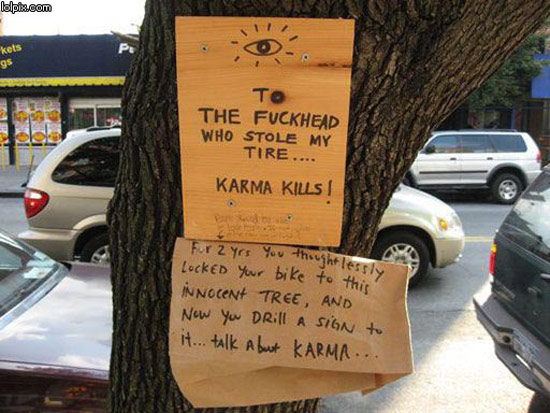 lolpix.com
kets
gs
P
TO
THE FUCKHEAD
WHO STOLE MY
TIRE....
KARMA KILLS!
For 2 yrs you thoughtlessly
LOCKED Your bike to this
iNNOCENT TREE, AND
NOW You DRill A SiGN to
it... talk About KARMA...